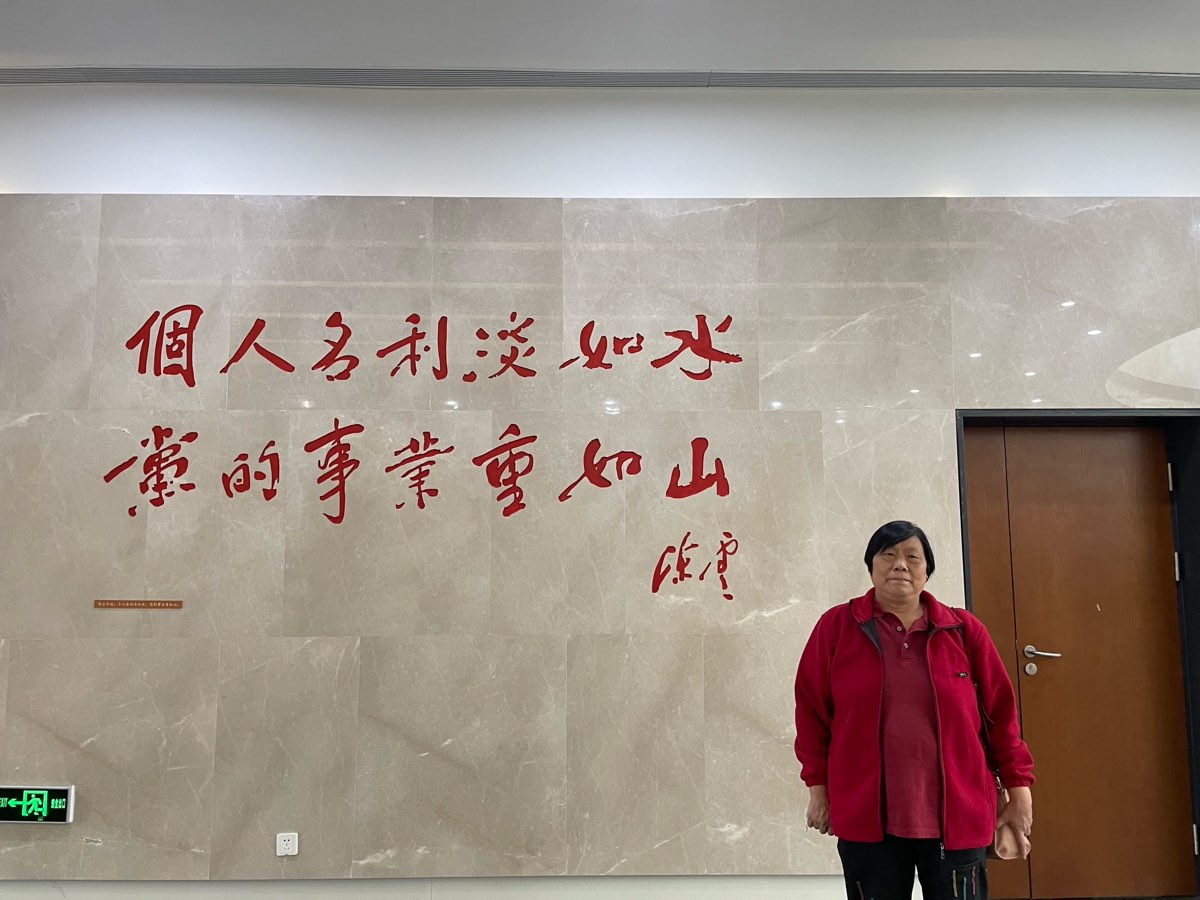 個人名利淡如水
黨的事業重如山
陳雲
EXIT 安全出口